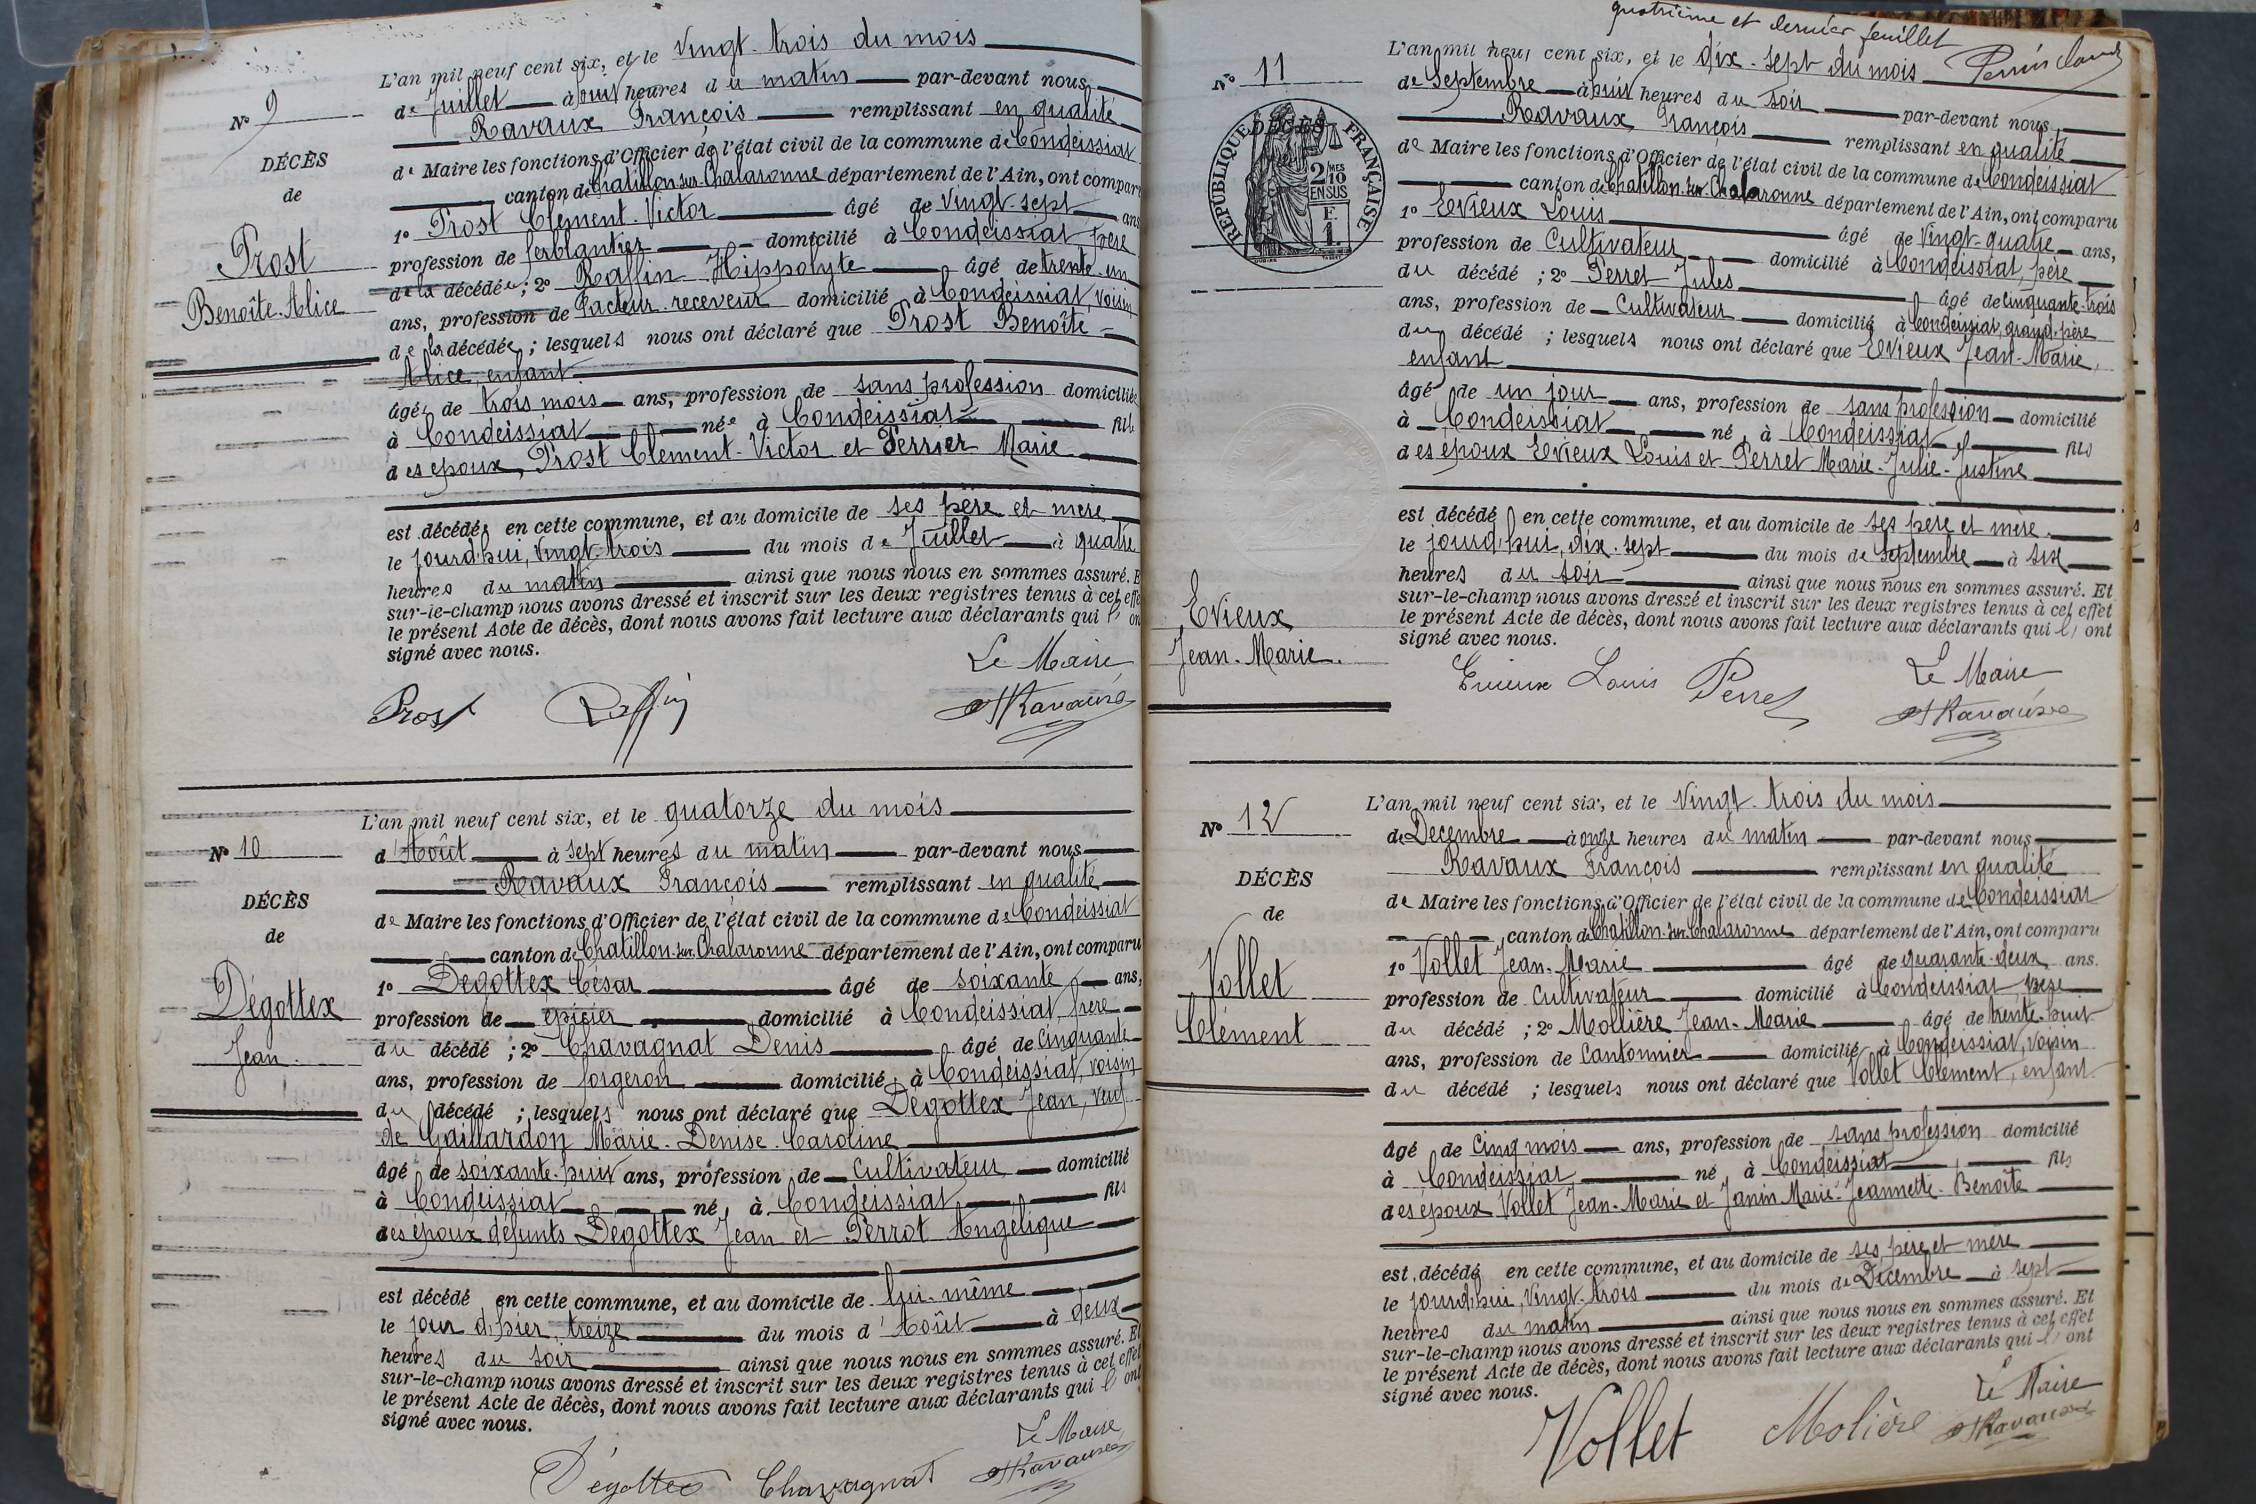 L'an mil neuf cent six, et le Vingt-trois du mois
N° 9
de Juillet à huit heures du matin par-devant nous
Ravaux François remplissant en qualité
DÉCÈS
de Maire les fonctions d'Officier de l'état civil de la commune de Condeissiat
de
canton de Chatillon-sur-Chalaronne département de l'Ain, ont comparu
Prost
Benoîte-Alice
1° Prost Clément-Victor âgé de Vingt-sept ans
profession de ferblantier domicilié à Condeissiat père
de la décédée ; 2° Raffin Hippolyte âgé de trente-un
ans, profession de facteur-receveur domicilié à Condeissiat, voisin
de la décédée ; lesquels nous ont déclaré que Prost Benoîte-
Alice, enfant
âgée de trois mois ans, profession de sans profession domiciliée
à Condeissiat née à Condeissiat fille
des époux Prost Clément-Victor et Perrier Marie
est décédée en cette commune, et au domicile de ses père et mère
le jourd'hui, vingt-trois du mois de Juillet à quatre
heures du matin ainsi que nous nous en sommes assuré. E
sur-le-champ nous avons dressé et inscrit sur les deux registres tenus à cet effe
le présent Acte de décès, dont nous avons fait lecture aux déclarants qui l' on
signé avec nous.
Le Maire
Prost Raffin Ravaux
L'an mil neuf cent six, et le quatorze du mois
N° 10
d'Août à sept heures du matin par-devant nous
Ravaux François remplissant en qualité
DÉCÈS
de Maire les fonctions d'Officier de l'état civil de la commune de Condeissiat
de
canton de Chatillon-sur-Chalaronne département de l'Ain, ont comparu
Dégottex
Jean.
1° Dégottex César âgé de soixante ans,
profession de épicier domicilié à Condeissiat, frère
du décédé ; 2° Chavagnat Denis âgé de Cinquante
ans, profession de forgeron domicilié à Condeissiat, voisin
du décédé ; lesquels nous ont déclaré que Dégottex Jean, veuf
de Gaillardon Marie-Denise-Caroline
âgé de soixante-huit ans, profession de Cultivateur domicilié
à Condeissiat né à Condeissiat fils
des époux défunts Dégottex Jean et Perrot Angélique
est décédé en cette commune, et au domicile de lui-même
le jour d'hier, treize du mois d'Août à deux
heures du soir ainsi que nous nous en sommes assuré. Et
sur-le-champ nous avons dressé et inscrit sur les deux registres tenus à cet effet
le présent Acte de décès, dont nous avons fait lecture aux déclarants qui l' ont
signé avec nous.
Le Maire
Dégottex Chavagnat Ravaux
quatrième et dernier feuillet
N° 11
L'an mil neuf cent six, et le dix-sept du mois
de Septembre à huit heures du soir par-devant nous
Ravaux François remplissant en qualité
DÉCÈS
RÉPUBLIQUE FRANÇAISE
2/10 MES
EN SUS
F.
1.
de Maire les fonctions d'Officier de l'état civil de la commune de Condeissiat
canton de Chatillon-sur-Chalaronne département de l'Ain, ont comparu
1° Evieux Louis âgé de vingt-quatre ans,
profession de Cultivateur domicilié à Condeissiat, père
du décédé ; 2° Perret Jules âgé de cinquante-trois
ans, profession de Cultivateur domicilié à Condeissiat, grand-père
du décédé ; lesquels nous ont déclaré que Evieux Jean-Marie,
enfant
âgé de un jour ans, profession de sans profession domicilié
à Condeissiat né à Condeissiat fils
des époux Evieux Louis et Perret Marie-Julie-Justine
est décédé en cette commune, et au domicile de ses père et mère.
le jourd'hui, dix-sept du mois de Septembre à six
heures du soir ainsi que nous nous en sommes assuré. Et
sur-le-champ nous avons dressé et inscrit sur les deux registres tenus à cet effet
Evieux
Jean-Marie.
le présent Acte de décès, dont nous avons fait lecture aux déclarants qui l' ont
signé avec nous.
Le Maire
Evieux Louis Perret Ravaux
N° 12
L'an mil neuf cent six, et le Vingt-trois du mois
de Décembre à onze heures du matin par-devant nous
Ravaux François remplissant en qualité
DÉCÈS
de Maire les fonctions d'Officier de l'état civil de la commune de Condeissiat
de
canton de Chatillon-sur-Chalaronne département de l'Ain, ont comparu
Vollet
Clément
1° Vollet Jean-Marie âgé de quarante-deux ans.
profession de Cultivateur domicilié à Condeissiat, père
du décédé ; 2° Mollière Jean-Marie âgé de trente-huit
ans, profession de Cantonnier domicilié à Condeissiat, voisin
du décédé ; lesquels nous ont déclaré que Vollet Clément, enfant.
âgé de Cinq mois ans, profession de sans profession domicilié
à Condeissiat, né à Condeissiat fils
des époux Vollet Jean-Marie et Janin Marie-Jeannette-Benoîte
est décédé en cette commune, et au domicile de ses père et mère
le jourd'hui, vingt-trois du mois de Décembre à sept
heures du matin ainsi que nous nous en sommes assuré. Et
sur-le-champ nous avons dressé et inscrit sur les deux registres tenus à cet effet
le présent Acte de décès, dont nous avons fait lecture aux déclarants qui l' ont
signé avec nous.
Le Maire
Vollet Molière Ravaux